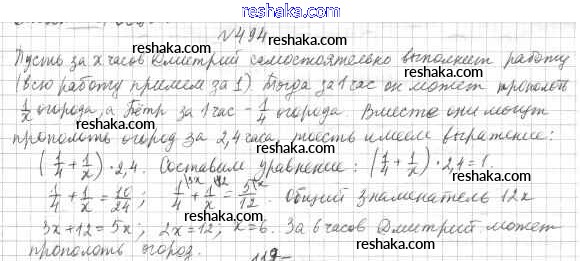 www.reshaka.ru
№494
Пусть за x часов Дмитрий самостоятельно выполнит работу
(всю работу примем за 1). Тогда за 1 час он может прополоть
1/x огорода, а Пётр за 1 час - 1/4 огорода. Вместе они могут
прополоть огород за 2,4 часа, то есть имеем выражение:
(1/4 + 1/x) · 2,4. Составим уравнение: (1/4 + 1/x) · 2,4 = 1.
1/4 + 1/x = 10/24; 1/4 + 1/x = 5/12. Общий знаменатель 12x
3x + 12 = 5x; 2x = 12; x = 6. За 6 часов Дмитрий может
прополоть огород.
reshaka.ru
reshaka.ru
reshaka.ru
reshaka.ru
reshaka.ru
reshaka.ru
reshaka.ru
reshaka.ru
reshaka.ru